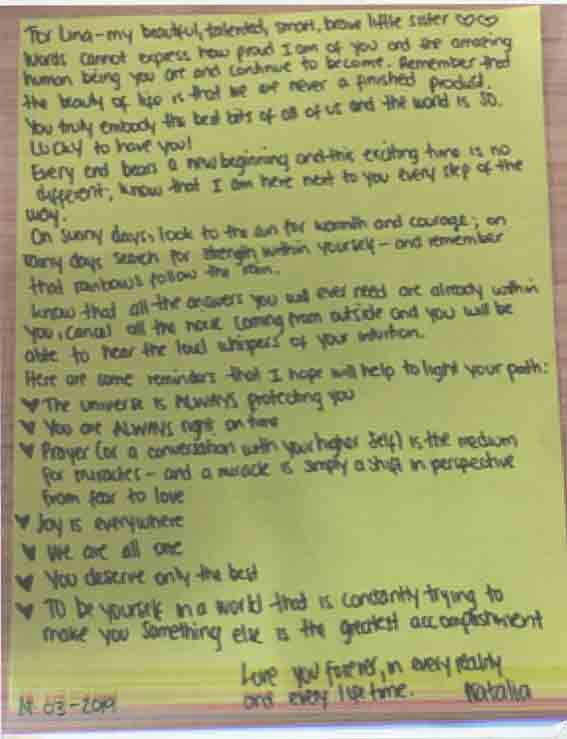 For Lina-my beautiful, talented, smart, brave little sister ♡♡
Words cannot express how proud I am of you and the amazing
human being you are and continue to become. Remember that
the beauty of life is that we are never a finished product.
You truly embody the best bits of all of us and the world is SO.
LUCKY to have you!
Every end bears a new beginning and this exciting time is no
different; know that I am here next to you every step of the
way.
On sunny days, look to the sun for warmth and courage; on
rainy days search for strength within yourself - and remember
that rainbows follow the rain.
Know that all the answers you will ever need are already within
you. Cancel all the noise coming from outside and you will be
able to hear the loud whispers of your intuition.
Here are some reminders that I hope will help to light your path:
♥ The universe is ALWAYS protecting you
♥ You are ALWAYS right on time
♥ Prayer (or a conversation with your higher self) is the medium
for miracles - and a miracle is simply a shift in perspective
from fear to love
♥ Joy is everywhere
♥ We are all one
♥ You deserve only the best
♥ TO be yourself in a world that is constantly trying to
make you something else is the greatest accomplishment
Love you forever, in every reality
and every lifetime. Natalia
03-2019